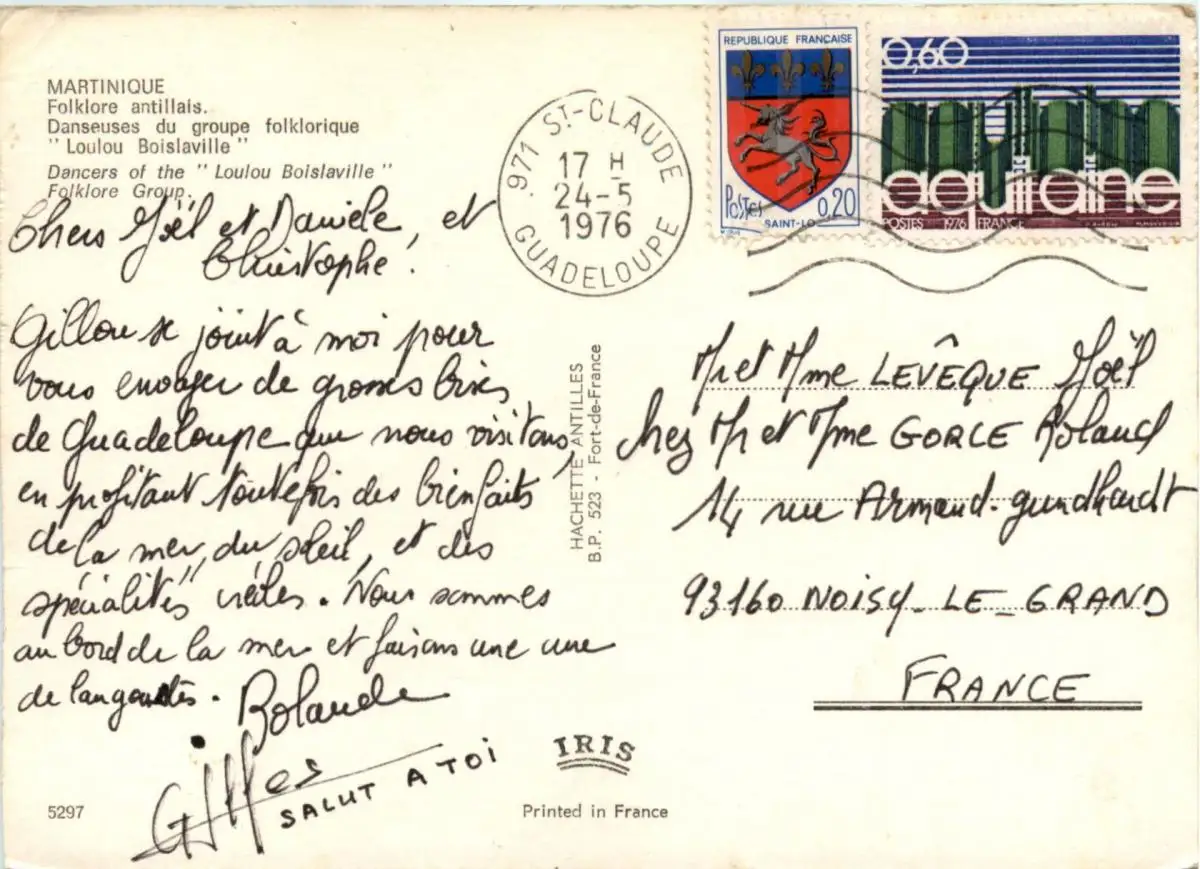 MARTINIQUE
Folklore antillais.
Danseuses du groupe folklorique
" Loulou Boislaville "
Dancers of the " Loulou Boislaville "
Folklore Group.
Chers Joël et Danièle, et
Christophe.
Gillou se joint à moi pour
vous envoyer de grosses bises
de Guadeloupe que nous visitons,
en profitant toutefois des bienfaits
de la mer, du soleil, et des
spécialités créoles. Nous sommes
au bord de la mer et faisons une cure
de langoustes.
Rolande
Gilles
SALUT A TOI
5297
971 ST-CLAUDE
17 H
24-5
1976
GUADELOUPE
REPUBLIQUE FRANÇAISE
POSTES 0,20
SAINT-LO
0,60
aquitaine
POSTES 1976 FRANCE
HACHETTE ANTILLES
B.P. 523 - Fort-de-France
Mr et Mme LEVÊQUE Joël
Chez Mr et Mme GORCE Roland
14 rue Armand-gundhardt
93160 NOISY-LE-GRAND
FRANCE
IRIS
Printed in France